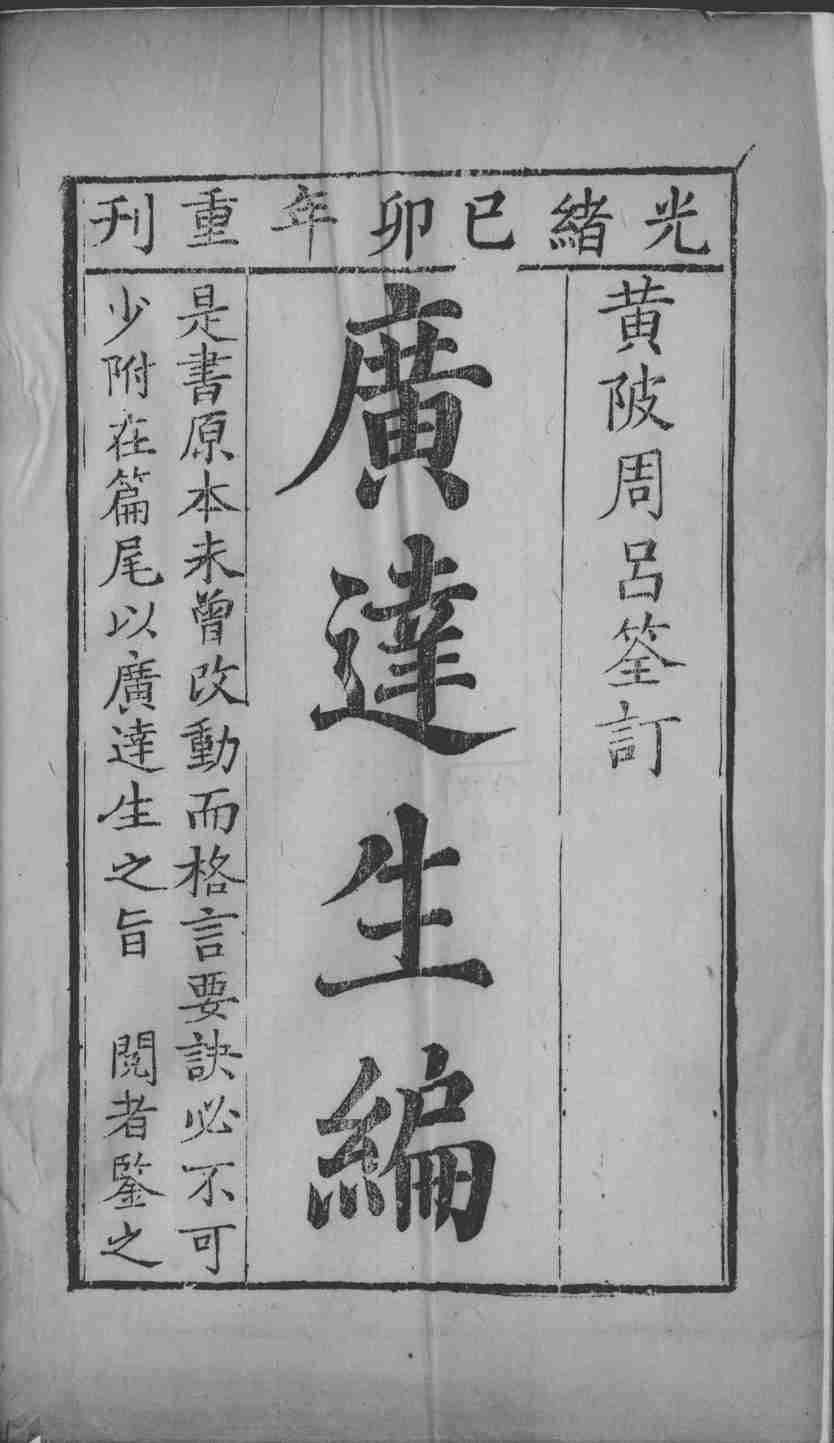 光緒己卯年重刊
黄陂周呂筌訂
廣達生編
是書原本未曾改動而格言要訣必不可
少附在篇尾以廣達生之旨 閱者鑒之